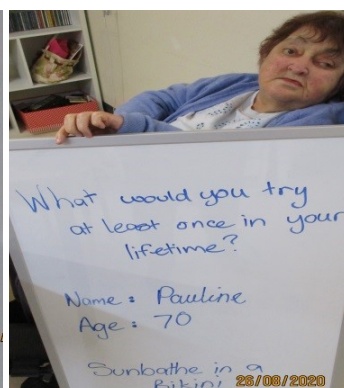 What would you try
at least once in your
lifetime?
Name: Pauline
Age: 70
Sunbathe in a
Bikini
26/08/2020